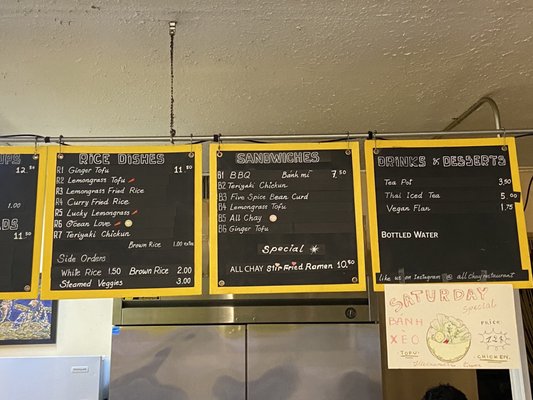 UPS
12.50
1.00
DS
11.50
RICE DISHES
R1 Ginger Tofu 11.50
R2 Lemongrass Tofu
R3 Lemongrass Fried Rice
R4 Curry Fried Rice
R5 Lucky Lemongrass
R6 Ocean Love
R7 Teriyaki Chickun
Brown Rice 1.00 extra
Side Orders
White Rice 1.50 Brown Rice 2.00
Steamed Veggies 3.00
SANDWICHES
B1 BBQ Bánh mì 7.50
B2 Teriyaki Chickun
B3 Five Spice Bean Curd
B4 Lemongrass Tofu
B5 All Chay
B6 Ginger Tofu
Special
ALL CHAY Stir Fried Ramen 10.50
DRINKS & DESSERTS
Tea Pot 3.50
Thai Iced Tea 5.00
Vegan Flan 1.75
BOTTLED WATER
like us on Instagram @ all chay restaurant
SATURDAY
BANH
XEO
PRICE
TOFU
CHICKEN